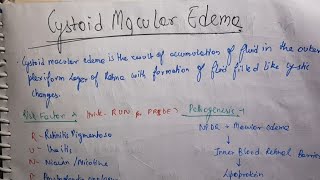 Cystoid Macular Edema
Cystoid macular edema is the result of accumulation of fluid in the outer
plexiform layer of Retina with formation of fluid filled like cystic
changes.
Risk Factor
R - Retinitis Pigmentosa
U - Uveitis
N - Niacin / Nicotine
Pathogenesis :-
NPDR + Macular edema
↓
Inner Blood Retinal Barrier
↓
Lipoprotein